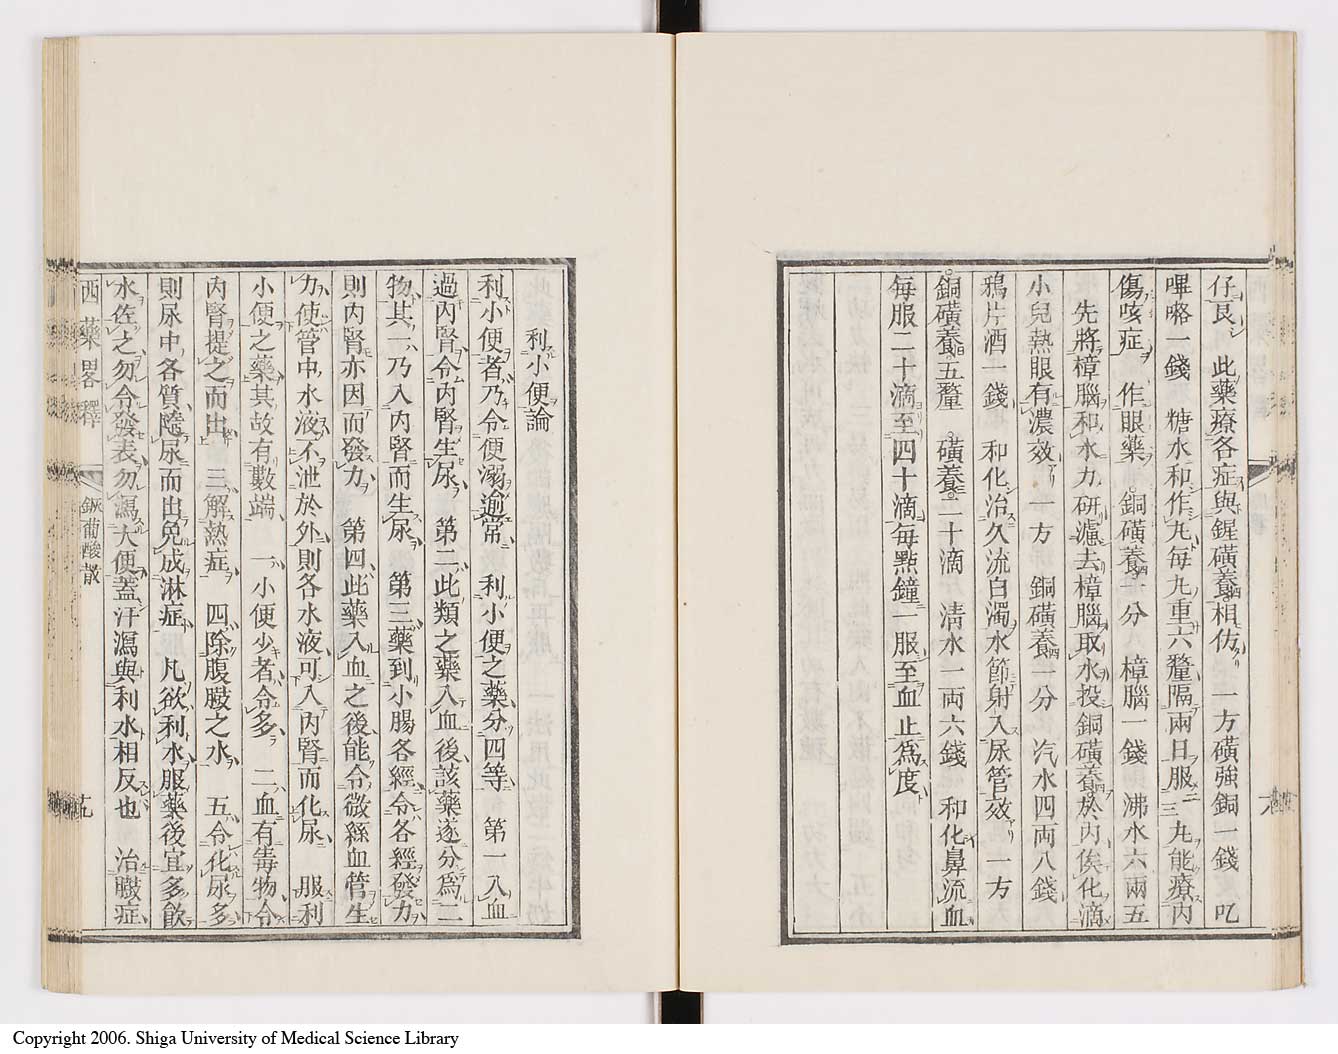 仔良 此藥療各症與鍟磺養四相仿 一方磺強銅一錢 吃
嗶咯一錢 糖水和作丸每丸重六釐隔兩日服三丸能療内
傷咳症 作眼藥 銅磺養四一分 樟腦一錢 沸水六兩五
先將樟腦和水力研濾去樟腦取水投銅磺養四於内俟化滴
小兒熱眼有濃效 一方 銅磺養四一分 汽水四兩八錢
鴉片酒一錢 和化治久流白濁水節射入尿管效 一方
銅磺養四五釐 磺養三二十滴 清水一兩六錢 和化鼻流血
每服二十滴至四十滴每點鐘一服至血止爲度
利小便論
利小便者乃令便溺逾常 利小便之藥分四等 第一入血
過内腎令内腎生尿 第二此類之藥入血後該藥遂分爲二
物其一乃入内腎而生尿 第三藥到小腸各經令各經發力
則内腎亦因而發力 第四此藥入血之後能令微絲血管生
力使管中水液不泄於外則各水液可入内腎而化尿 服利
小便之藥其故有數端 一小便少者令多 二血有毒物令
内腎提之而出 三解熱症 四除腹臌之水 五令化尿多
則尿中各質隨尿而出免成淋症 凡欲利水服藥後宜多飲
水佐之勿令發表勿瀉大便蓋汗瀉與利水相反也 治臌症
西藥畧釋 鉃葡酸散 十九
Copyright 2006. Shiga University of Medical Science Library